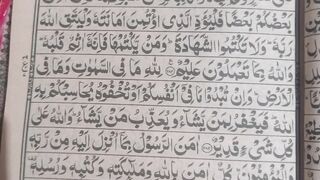 بَعْضُكُمْ بَعْضًا فَلْيُؤَدِّ الَّذِي اؤْتُمِنَ اَمَانَتَهٗ وَلْيَتَّقِ اللّٰهَ
رَبَّهٗ ؕ وَلَا تَكْتُمُوا الشَّهَادَةَ ؕ وَمَنْ يَّكْتُمْهَا فَاِنَّهٗۤ اٰثِمٌ قَلْبُهٗ ؕ
وَاللّٰهُ بِمَا تَعْمَلُوْنَ عَلِيْمٌ ۝ لِلّٰهِ مَا فِي السَّمٰوٰتِ وَمَا فِي
الْاَرْضِ ؕ وَاِنْ تُبْدُوْا مَا فِيْۤ اَنْفُسِكُمْ اَوْ تُخْفُوْهُ يُحَاسِبْكُمْ بِهِ
اللّٰهُ ؕ فَيَغْفِرُ لِمَنْ يَّشَآءُ وَيُعَذِّبُ مَنْ يَّشَآءُ ؕ وَاللّٰهُ عَلٰى
كُلِّ شَيْءٍ قَدِيْرٌ ۝ اٰمَنَ الرَّسُوْلُ بِمَاۤ اُنْزِلَ اِلَيْهِ مِنْ رَّبِّهٖ
كُلٌّ اٰمَنَ بِاللّٰهِ وَمَلٰٓئِكَتِهٖ وَكُتُبِهٖ وَرُسُلِهٖ